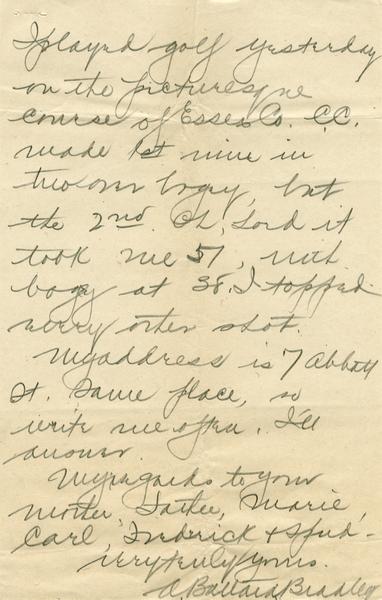 I played golf yesterday
on the picturesque
course of Essex Co. C.C.
made 1st nine in
two over bogey, but
the 2nd. Oh, Lord it
took me 51, with
bogey at 38. I topped
every other shot.
My address is 7 Abbott
St. Same place, so
write me often. I'll
answer.
My regards to your
mother, Father, Marie,
Carl, Frederick + Spud -
Very truly yours.
A Ballard Bradley